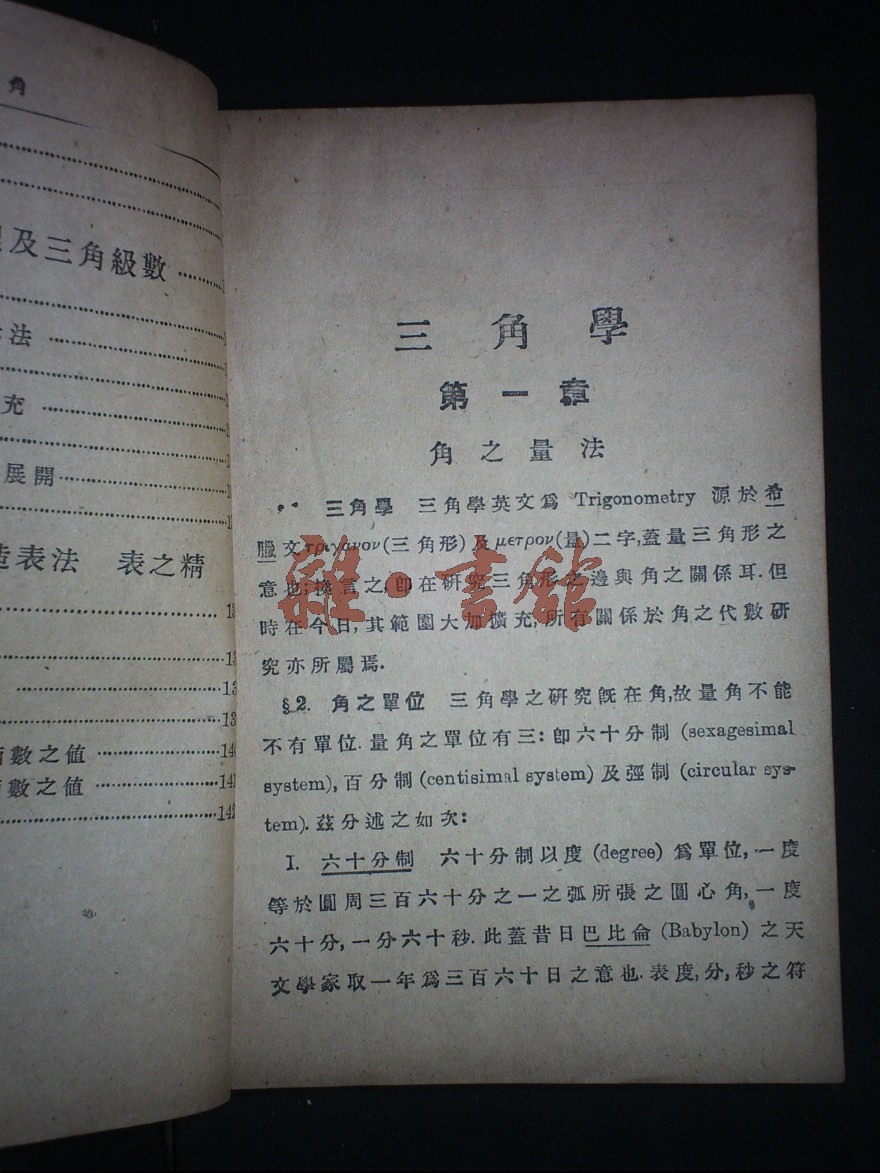 角
及三角級數
法
充
展開
造表法 表之精
數之值
數之值
三角學
第一章
角之量法
三角學 三角學英文爲 Trigonometry 源於希
臘文τριγωνον(三角形)及μετρον(量)二字,蓋量三角形之
意也;換言之,卽在硏究三角形之邊與角之關係耳.但
時在今日,其範圍大加擴充,所有關係於角之代數硏
究亦所屬焉.
§2. 角之單位 三角學之硏究旣在角,故量角不能
不有單位.量角之單位有三:卽六十分制 (sexagesimal
system),百分制(centisimal system)及弳制 (circular sys-
tem).茲分述之如次:
I. 六十分制 六十分制以度 (degree) 爲單位,一度
等於圓周三百六十分之一之弧所張之圓心角,一度
六十分,一分六十秒.此蓋昔日巴比侖 (Babylon) 之天
文學家取一年爲三百六十日之意也.表度,分,秒之符
雜·書館